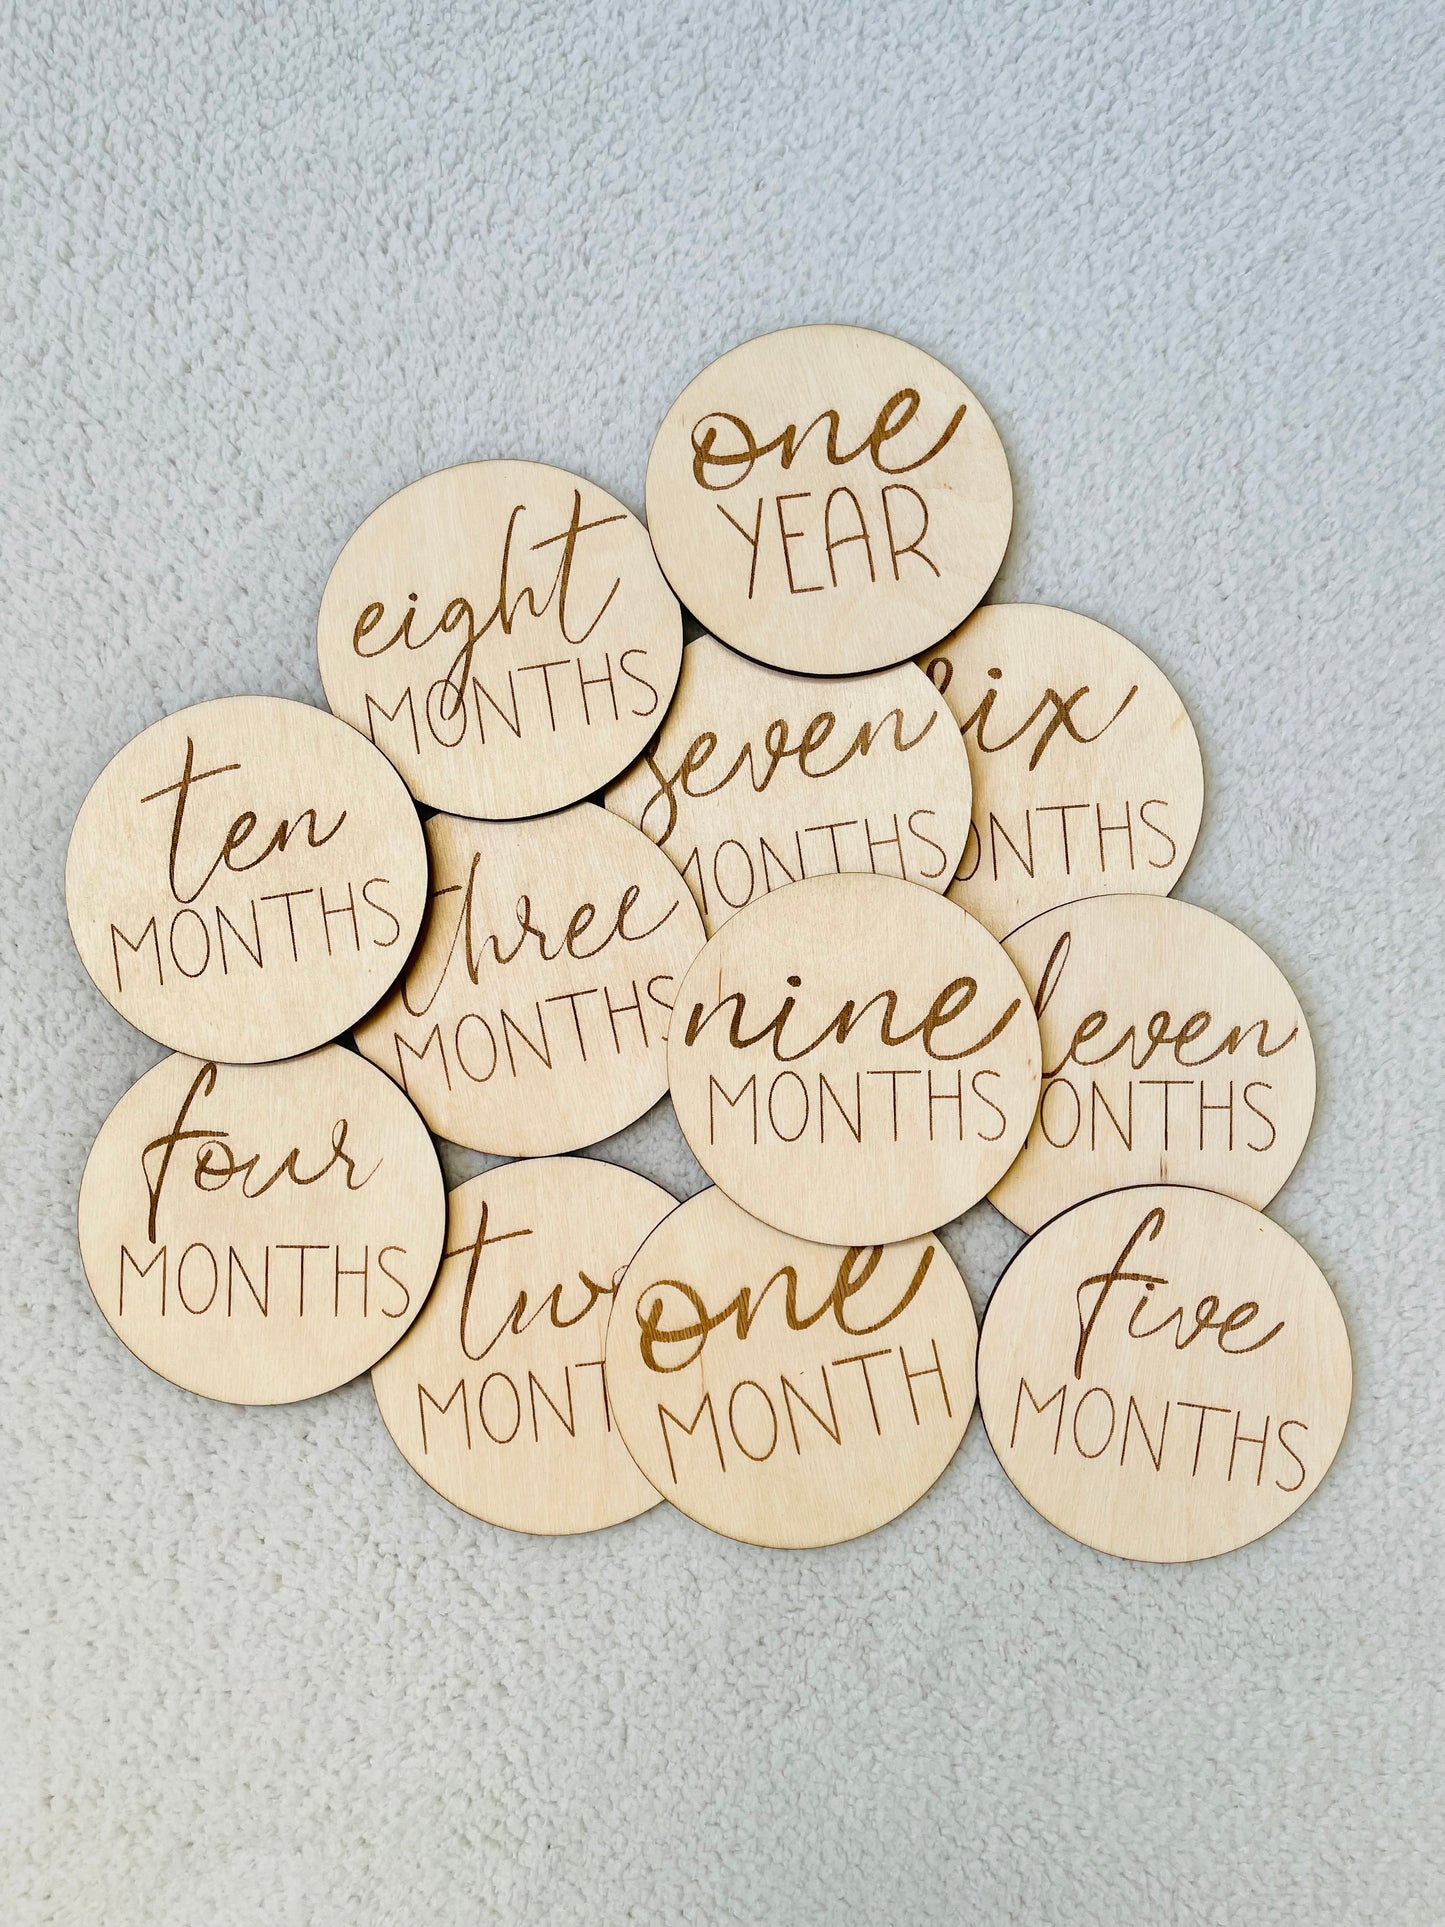 one
YEAR
eight
MONTHS
ix
ONTHS
seven
MONTHS
ten
MONTHS
three
MONTHS
nine
MONTHS
leven
ONTHS
four
MONTHS
two
MONT
one
MONTH
five
MONTHS